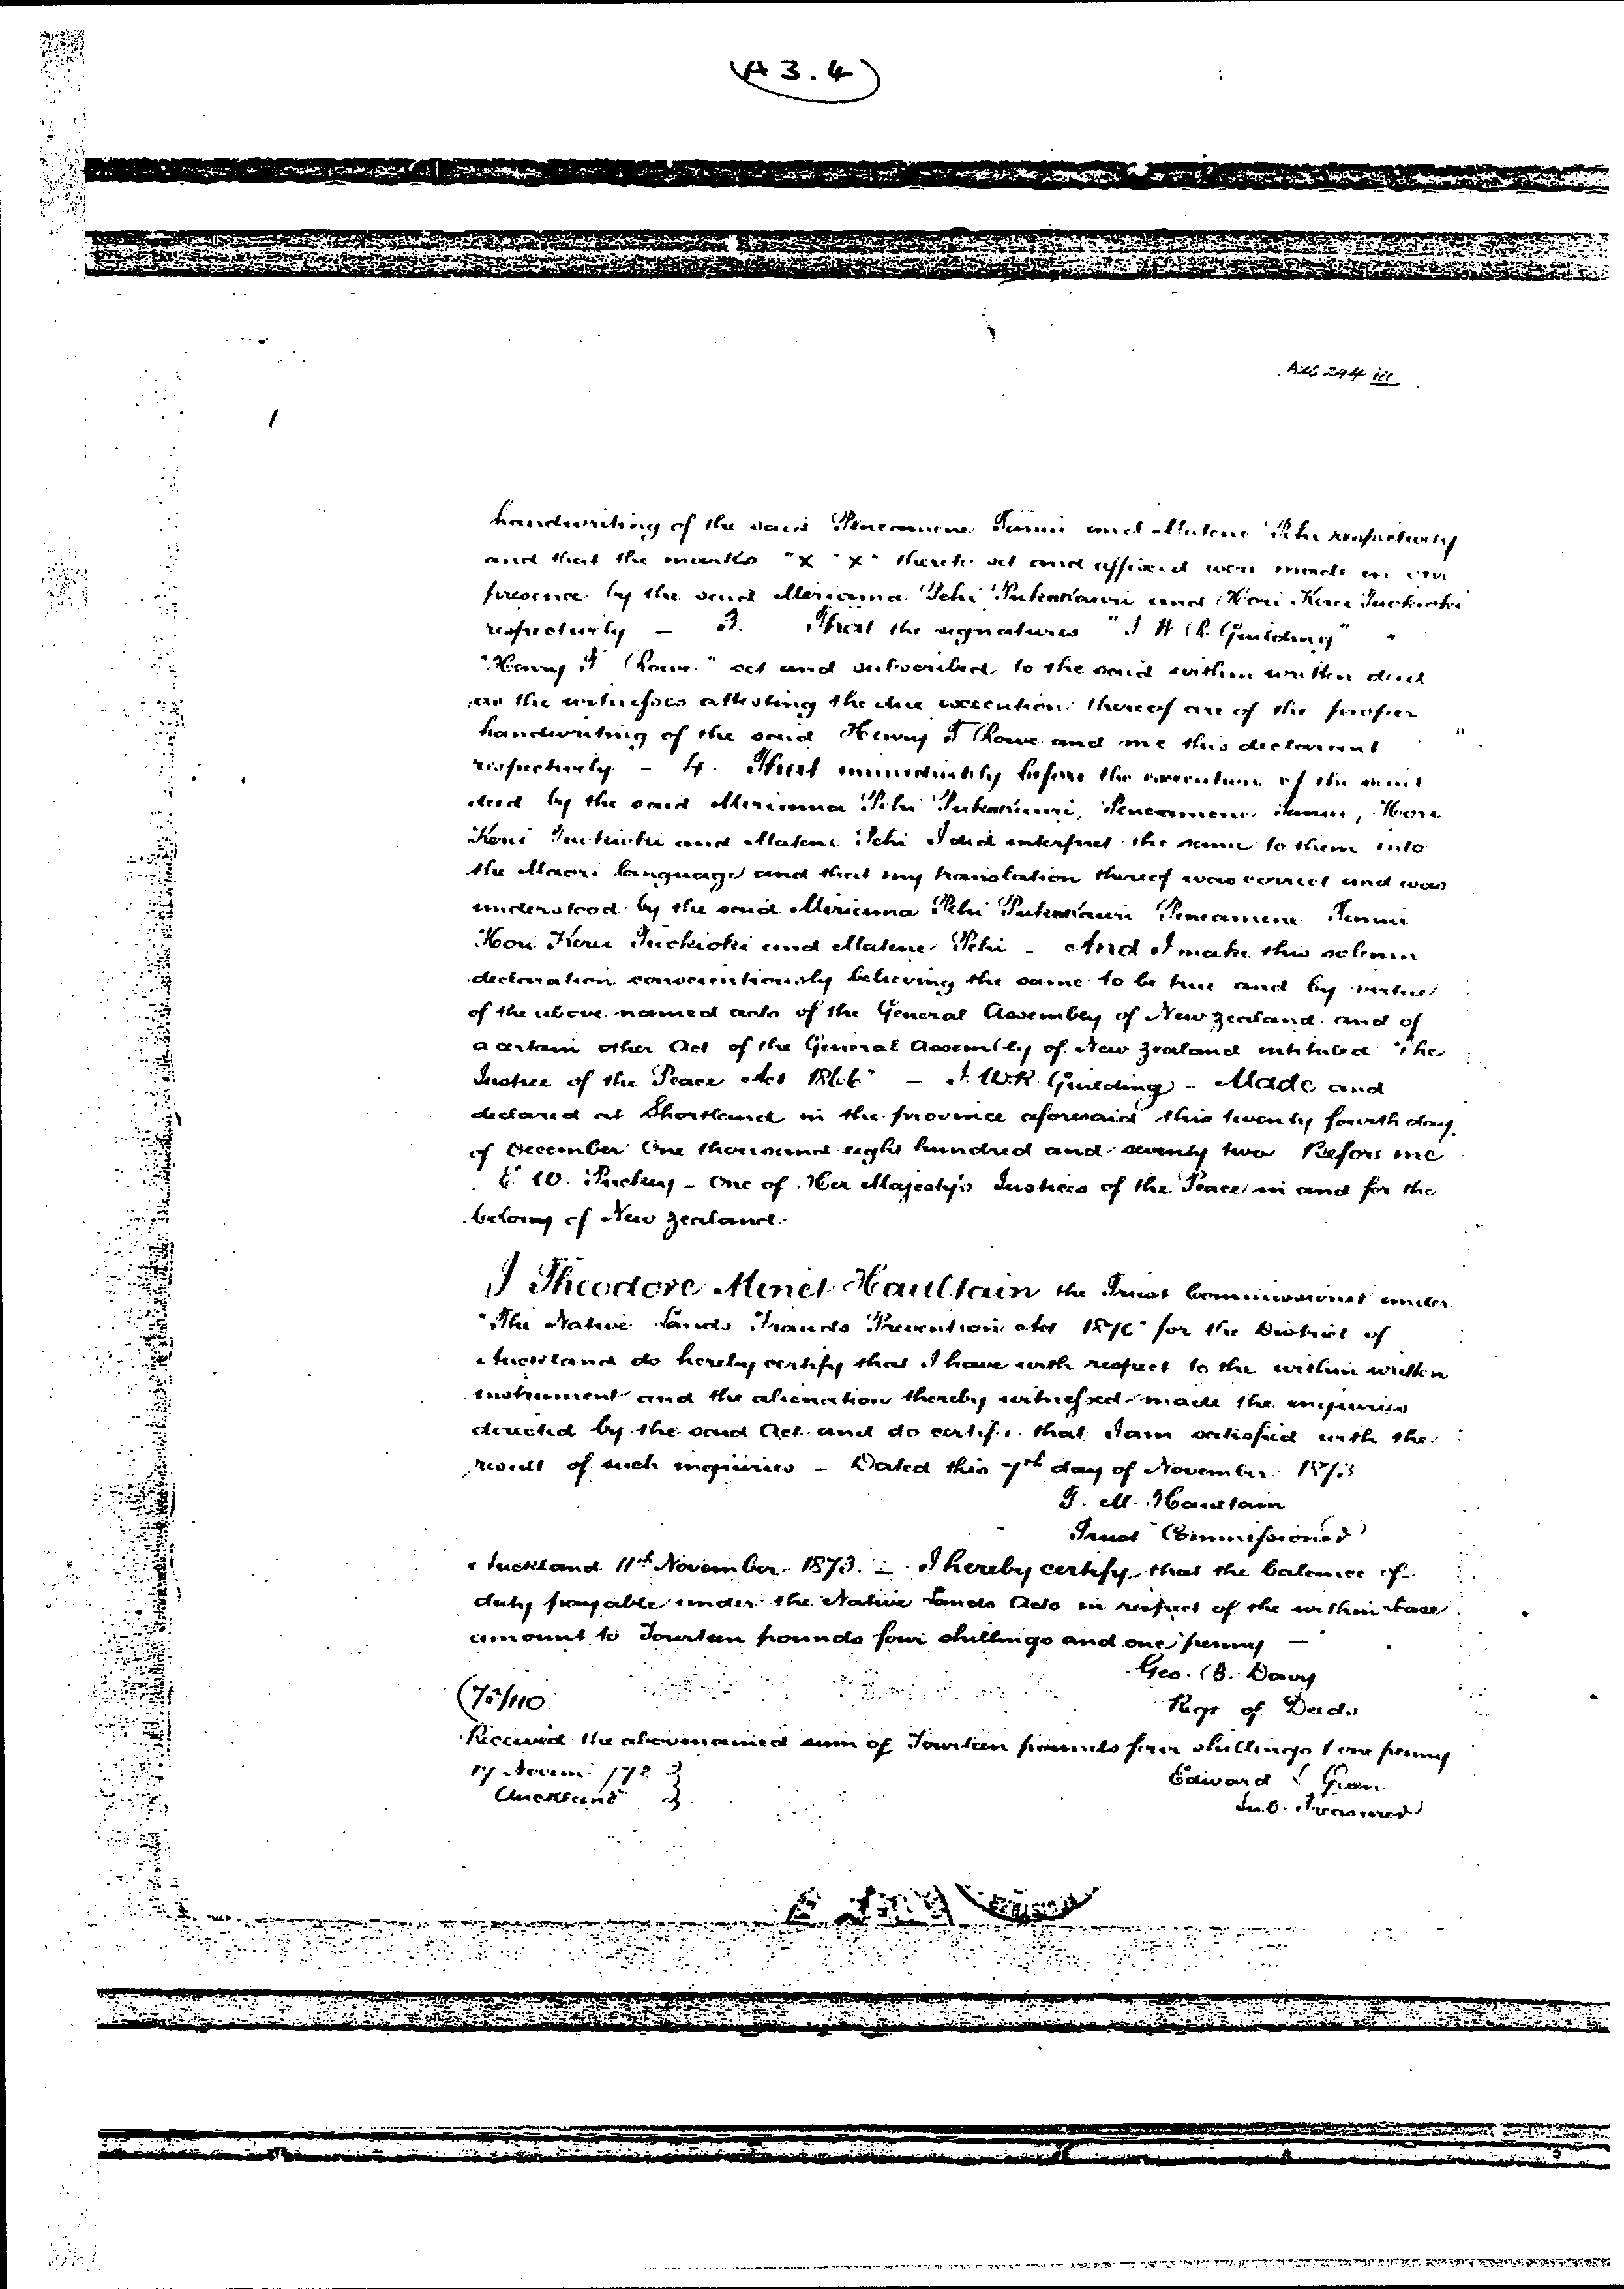 A3.4
handwriting of the said Peneamene Tanui and Matene Pehi respectively
and that the marks "X" "X" thereto set and affixed were made in our
presence by the said Meriama Pehi Pukarauri and Hori Kerei Tuokioki
respectively - 3. That the signatures "J W R. Guilding" "
"Henry T Rowe" set and subscribed to the said within written deed
as the witnesses attesting the due execution thereof are of the proper
handwriting of the said Henry T Rowe and me this declarant
respectively - 4. That immediately before the execution of the said
deed by the said Meriama Pehi, Peneamene Tanui, Hori
Kerei and Matene Pehi I did interpret the same to them into
the Maori language and that my translation thereof was correct and was
understood by the said Meriama Pehi Peneamene Tanui
Hori Kerei and Matene Pehi - And I make this solemn
declaration conscientiously believing the same to be true and by virtue
of the above named acts of the General Assembly of New Zealand and of
a certain other Act of the General Assembly of New Zealand intituled "The
Justice of the Peace Act 1866" - J. W. R. Guilding - Made and
declared at Shortland in the province aforesaid this twenty fourth day
of December One thousand eight hundred and seventy two Before me
E W. Puckey - One of Her Majesty's Justices of the Peace in and for the
Colony of New Zealand.
I Theodore Minet Haultain the Trust Commissioner under
"The Native Lands Frauds Prevention Act 1870" for the District of
Auckland do hereby certify that I have with respect to the within written
instrument and the alienation thereby witnessed made the inquiries
directed by the said Act and do certify that I am satisfied with the
result of such inquiries - Dated this 7th day of November 1873
T. M. Haultain
Trust Commissioner
Auckland 11th November 1873. - I hereby certify that the balance of
duty payable under the Native Lands Acts in respect of the within Lease
amount to Fourteen pounds four shillings and one penny -
Geo. B. Davy
(73/110
Regr of Deeds
Received the abovenamed sum of Fourteen pounds four shillings & one penny
17 Novem.
Edward Green
Auckland
Sub. Treasurer